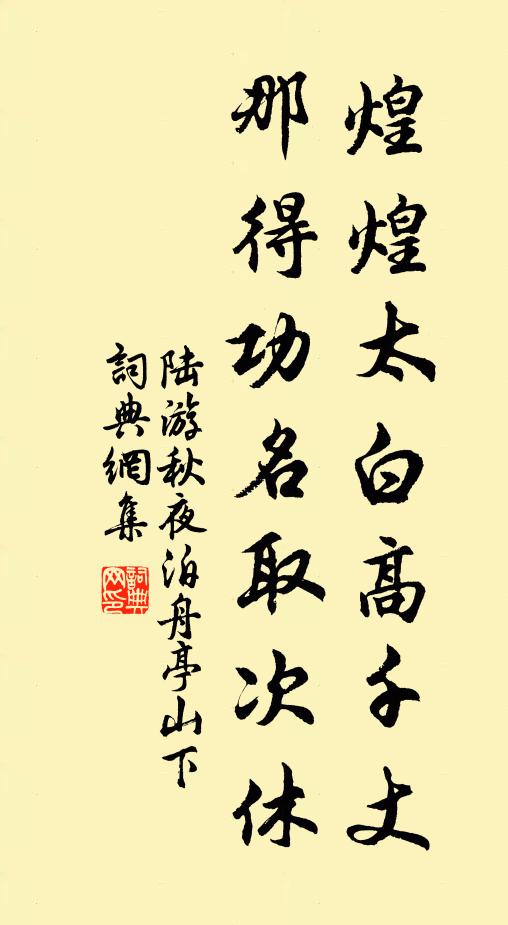 煌煌太白高千丈
那得功名取次休
陆游秋夜泊舟亭山下
詞典網集
詞典
网印